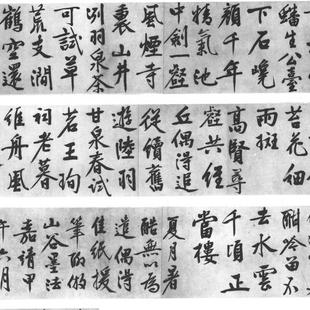 蟠生公臺
下石嶢
顏千年
精氣池
中劍一壑
風煙寺
裏山井
冽羽泉茶
可試草
荒支澗
鶴空還
苔花細
雨斑
高賢尋
壑共經
丘偶得追
從續舊
遊陸羽
甘泉春試
茗王珣
祠老暮
維舟風
酣冷苗不
去水雲
千頃正
當樓
夏月著
酷無以爲
遣偶得
佳紙援
筆酌倣
山谷墨法
嘉靖甲
午六月